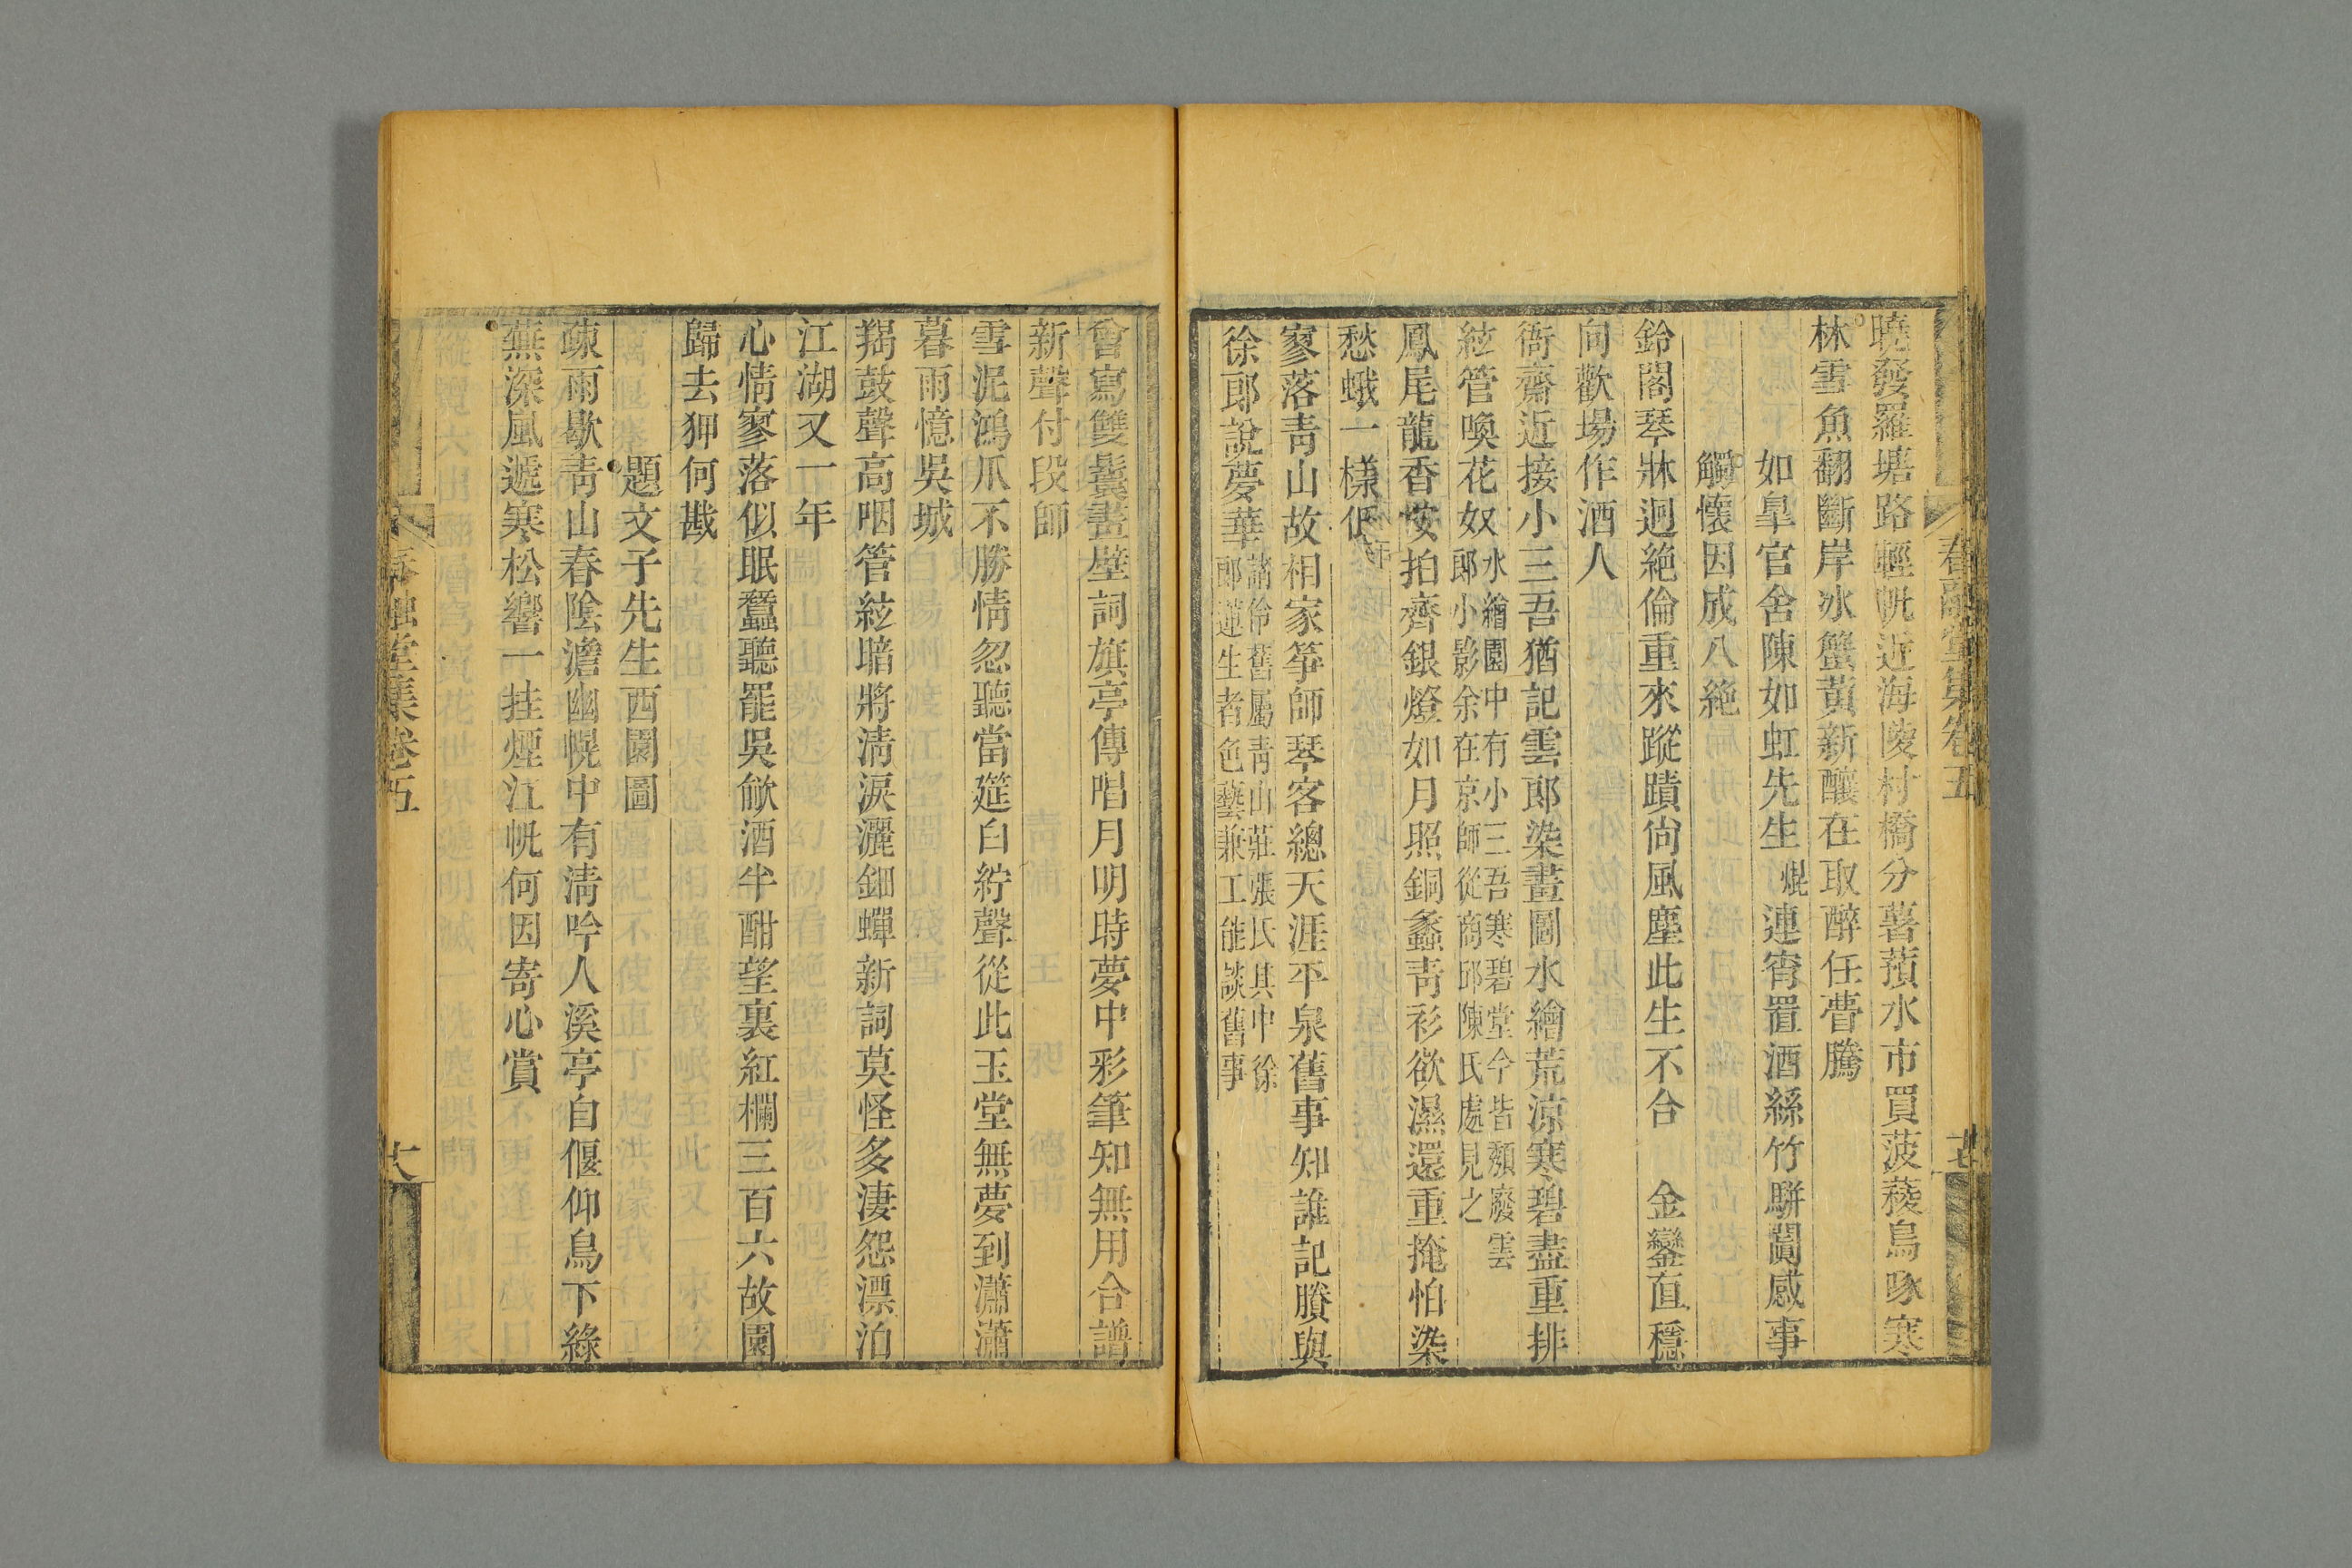 春融堂集卷五
曉發羅塘路輕帆近海陵村橋分薯蕷水市買菠薐鳥啄寒
林雪魚翻斷岸冰蟹黃新釀在取醉任瞢騰
如臯官舍陳如虹先生焜連宵置酒絲竹駢闐感事
觸懷因成八絶
鈴閣琴牀迥絶倫重來蹤蹟尙風塵此生不合金鑾直穩
向歡場作酒人
衙齋近接小三吾猶記雲郎染畫圖水繪荒涼寒碧盡重排
絃管喚花奴水繪園中有小三吾寒碧堂今皆頽廢雲
郎小影余在京師從商邱陳氏處見之
鳳尾龍香按拍齊銀燈如月照銅蠡靑衫欲濕還重掩怕染
愁蛾一樣低
寥落靑山故相家筝師琴客總天涯平泉舊事知誰記賸與
徐郎說夢華諸伶舊屬靑山莊張氏其中徐
郎蓮生者色藝兼工能談舊事
曾寫雙鬟畫壁詞旗亭傳唱月明時夢中彩筆知無用合譜
新聲付段師
雪泥鴻爪不勝情忽聽當筵白紵聲從此玉堂無夢到瀟瀟
暮雨憶吳城
羯鼓聲高咽管絃暗將淸淚灑鈿蟬新詞莫怪多淒怨漂泊
江湖又一年
心情寥落似眠蠶聽罷吳歈酒半酣望裏紅欄三百六故園
歸去狎何戡
題文子先生西園圖
疎雨歇靑山春陰澹幽幌中有淸吟人溪亭自偃仰鳥下綠
蕪深風遞寒松響一挂煙江帆何因寄心賞
春融堂集卷五